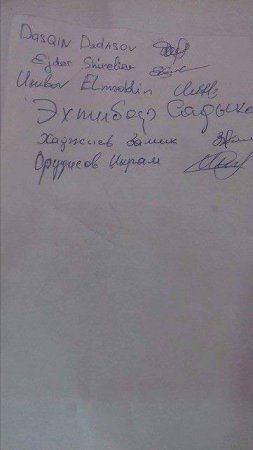 Dasqin Dadasov
Ejder Shireliev
Elmeddin
Эхтибар Садыко
Хаджиев Замик
Оруджов Икрам